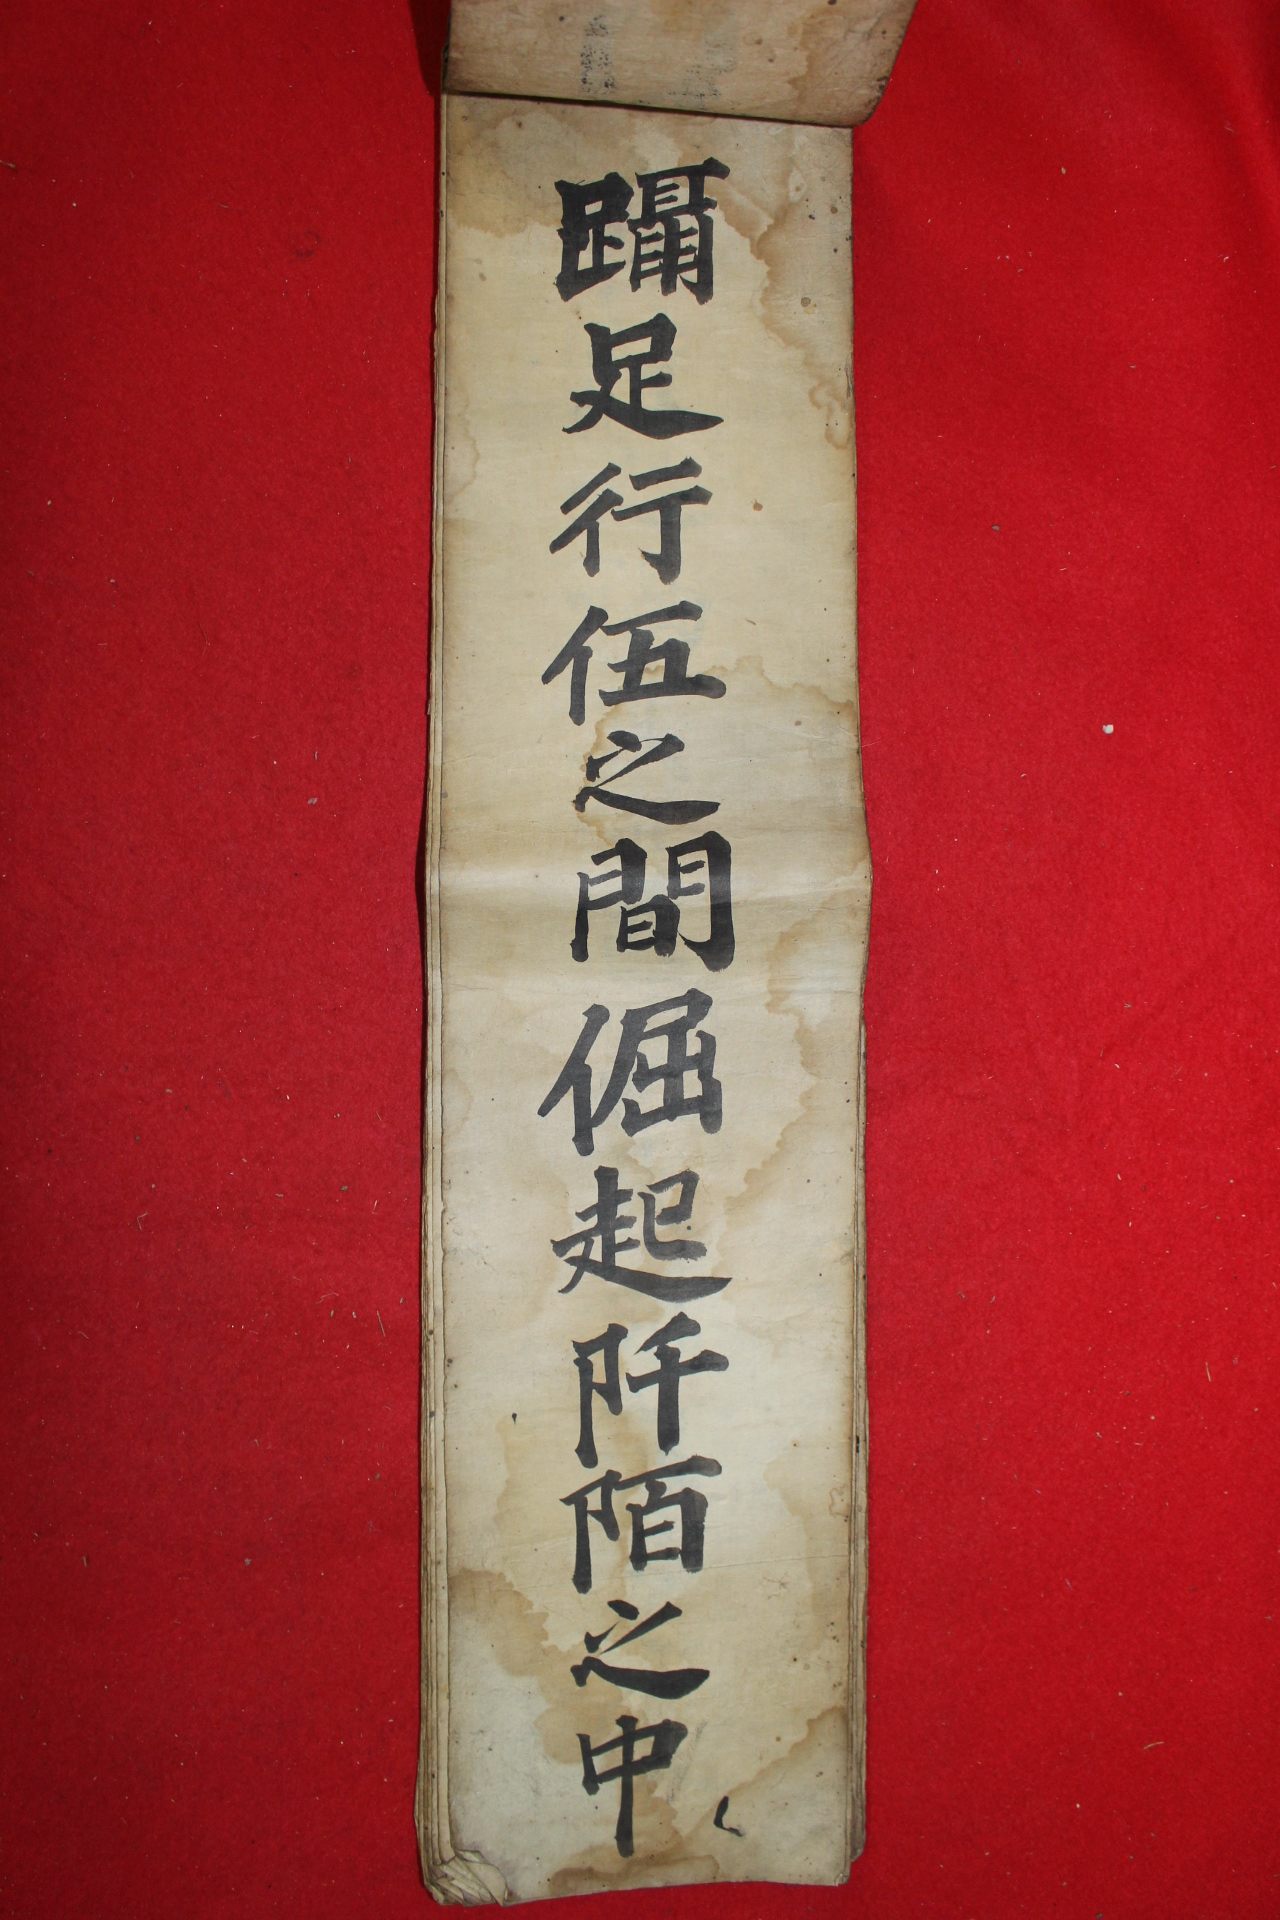 躡足行伍之間倔起阡陌之中